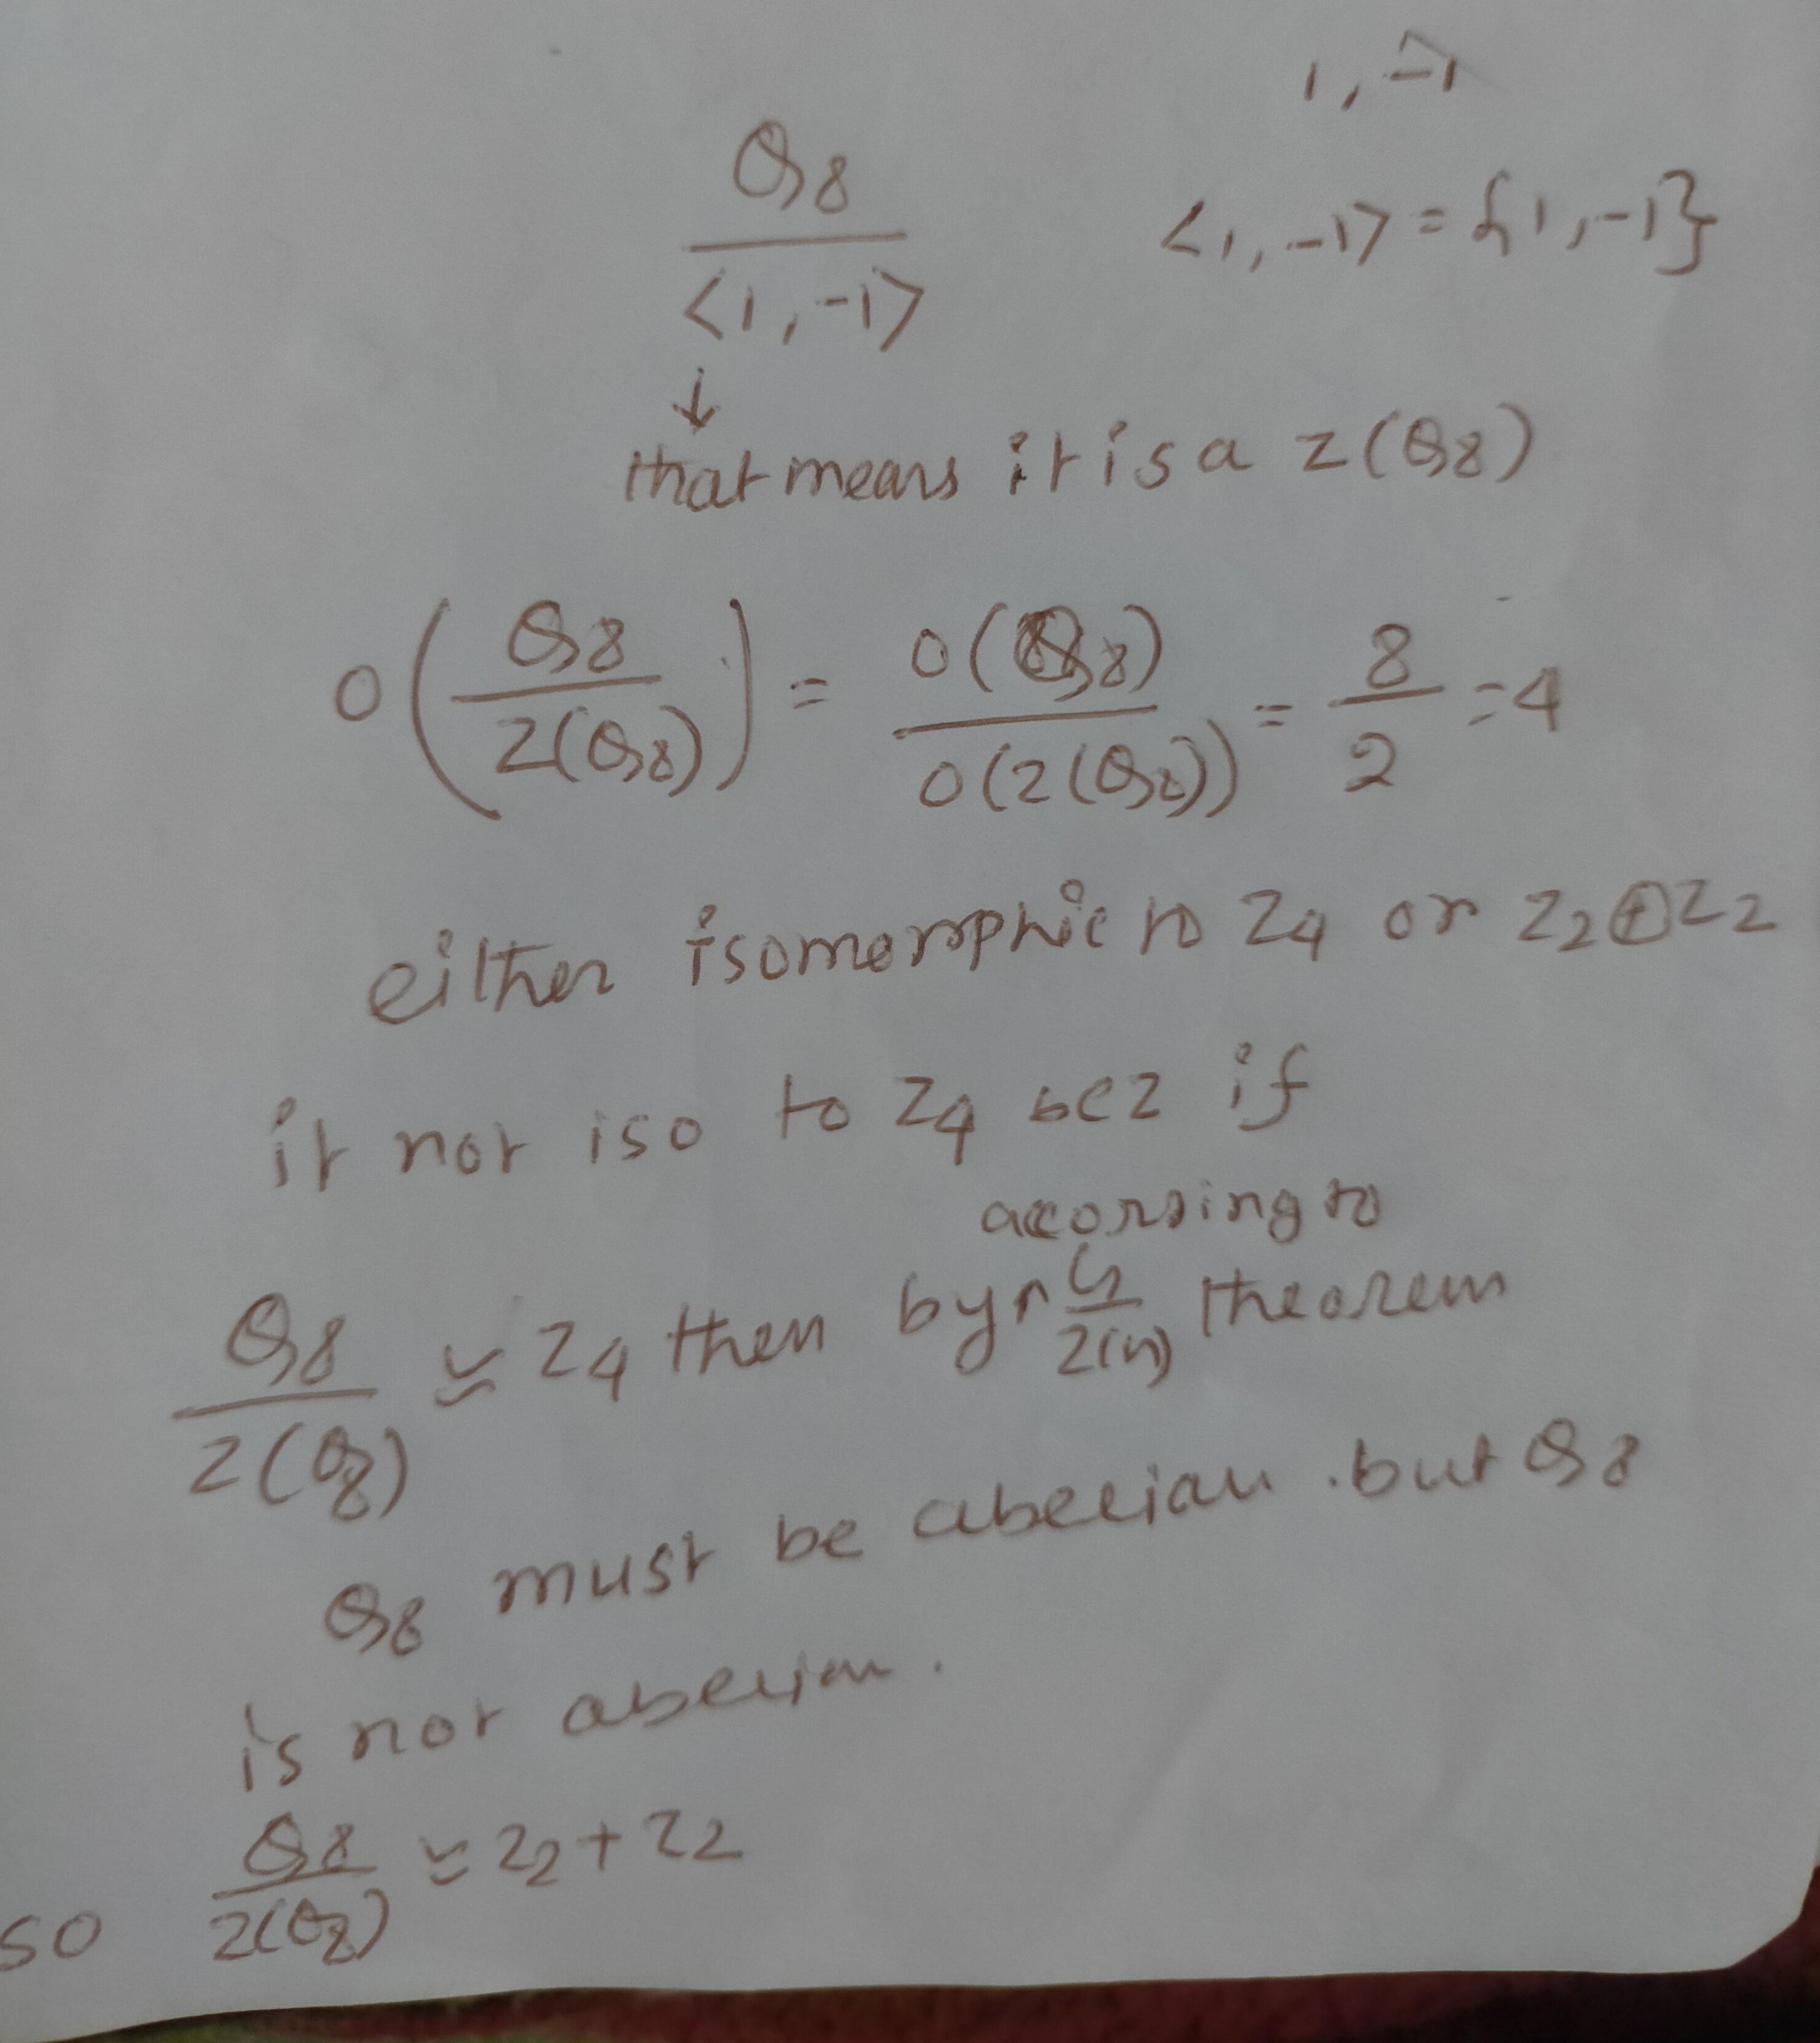 1, -1
Q8
<1, -1>
<1, -1> = {1, -1}
↓
that means it is a Z(Q8)
O(Q8/Z(Q8)) = O(Q8)/O(Z(Q8)) = 8/2 = 4
either isomorphic to Z4 or Z2⊕Z2
it not iso to Z4 bcz if
according to
Q8/Z(Q8) ≅ Z4 then by G/Z(G) theorem
Q8 must be abelian. but Q8
is not abelian.
so Q8/Z(Q8) ≅ Z2 + Z2